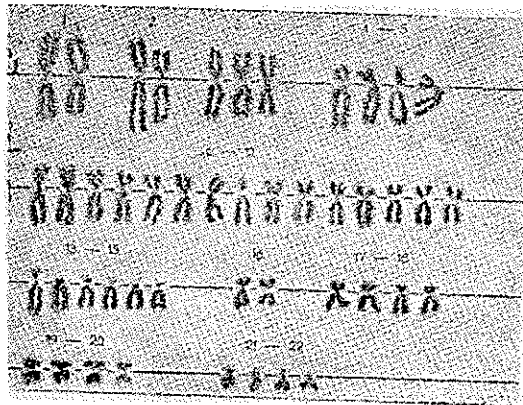 4 — 5
13 — 15 16 17 — 18
19 — 20 21 — 22